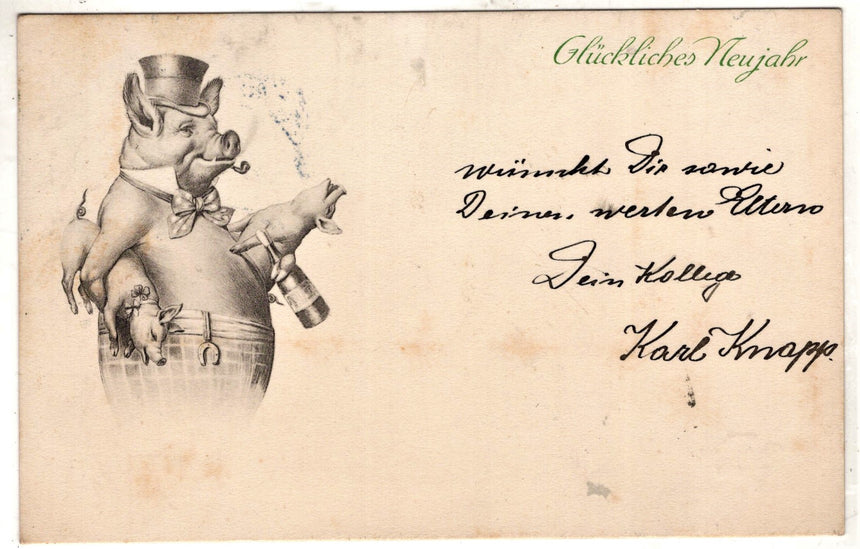 Glückliches Neujahr
wünscht Dir sowie
Deinen werten Eltern
Dein Kollege
Karl Knapp.